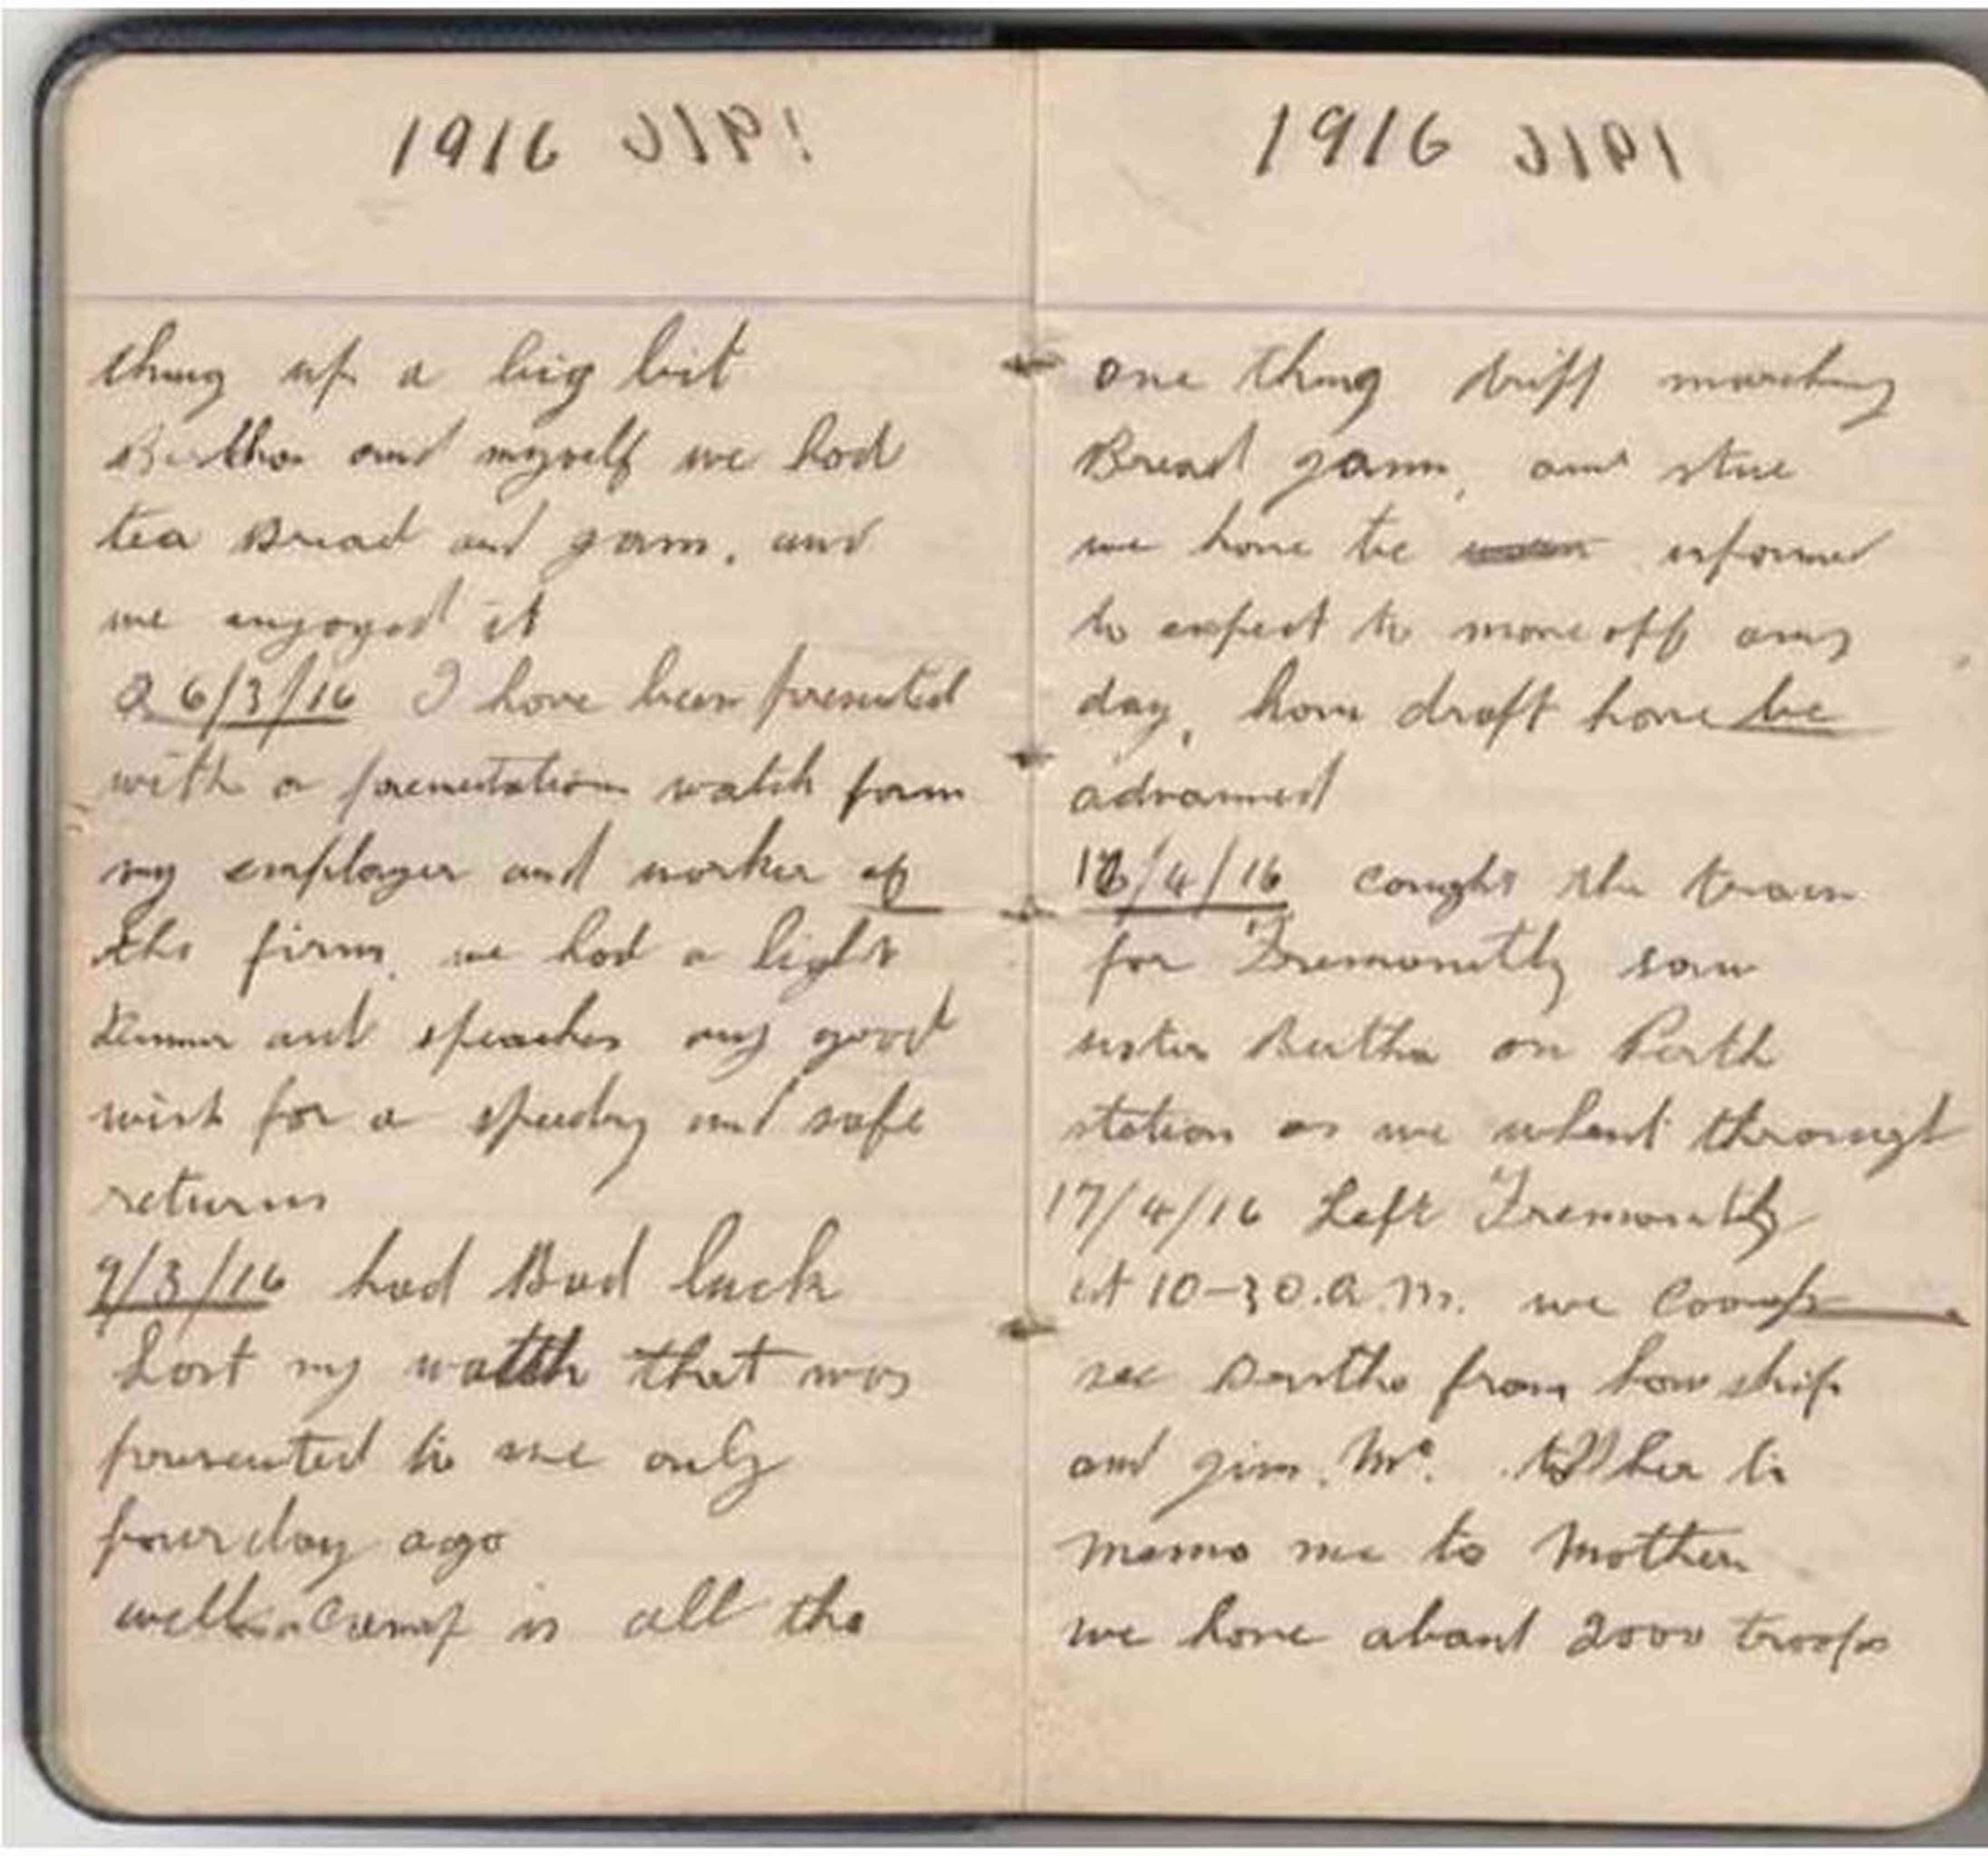 1916
thing up a big bit
Bertha and myself we had
tea Bread and gam, and
we engoyed it
6/3/16 I have been presented
with a presentation watch from
my employer and worker of
the firm, we had a light
dinner and speaches any good
wish for a speedy and safe
returns
9/3/16 had Bad luck
Lost my watch that was
presented to me only
four day ago
well Camp is all the
1916
one thing marching
Bread gamm, and stue
we have be informed
to expect to move off any
day, draft have be
advanced
/4/16 caught the train
for saw
sister Bertha on Perth
station as we whent througt
17/4/16 Left
at 10-30.a.m. we
see Bertha from ship
and gim. Mc. her to
me to Mother
we have abaut 2000 troops